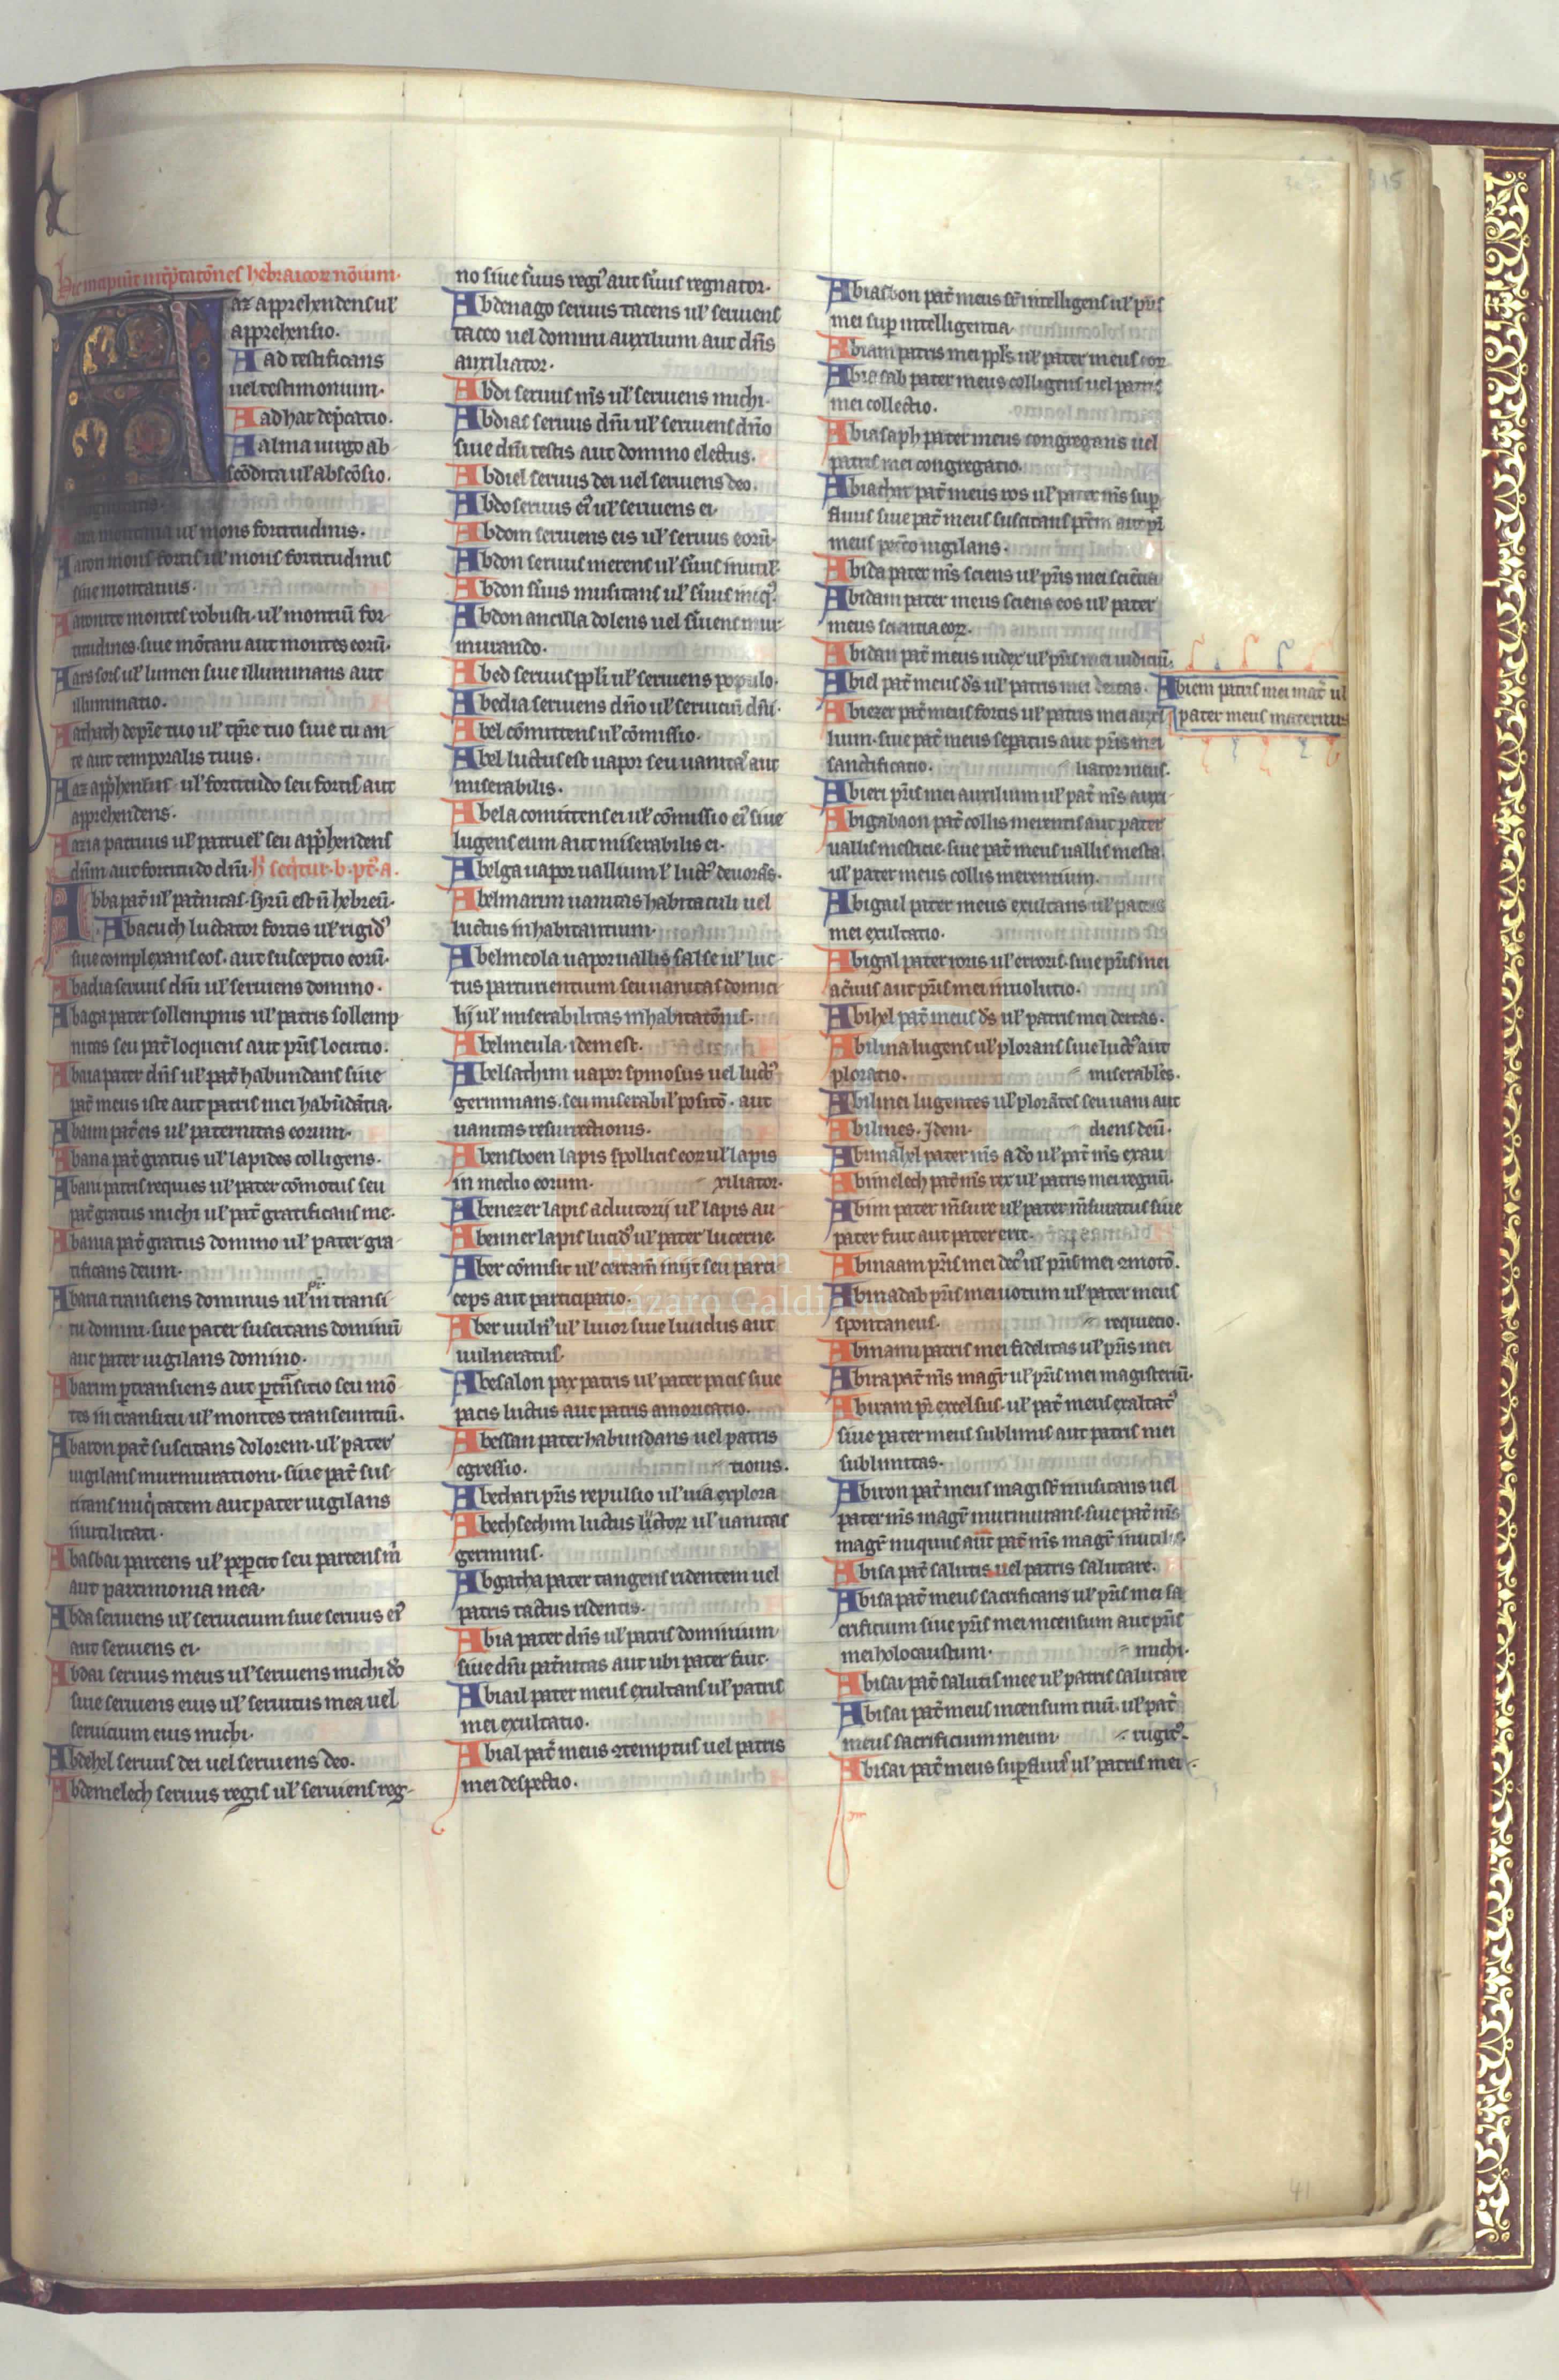 Hic incipiūt int̄p̄tatōnes hebraicoꝝ nōium·
Aaz apprehendens ul̓
apprehensio·
Aad testificans
uel testimonium·
Aadhat dep̄catio·
Aalma uirgo ab
scōdita ul̓ abscōsio·
Aara montana ul̓ mons fortitudinis·
Aaron mons fortis ul̓ mons fortitudinis
siue montanus·
Aaronite montes robusti· ul̓ montiū for
titudines· siue mōtani aut montes eorū·
ul̓ lumen siue illuminans aut
illuminatio·
tuo ul̓ tuo siue tu an
te aut temporalis tuus·
Aaz app̄hensus ul̓ fortitudo seu fortis aut
apprehendens·
Aazia patruus ul̓ patruel̓ seu app̄hendens
dn̄m aut fortitudo dn̄i· h̓ seq̄tur· b· pt̓ a·
Abba pat̄ ul̓ pat̄nitas· syrū est ñ hebreū·
Abacuch luctator fortis ul̓ rigidꝰ
siue complexans eos· aut susceptio eorū·
Abadia seruus dn̄i ul̓ seruiens domino·
Abaga pater sollempnis ul̓ patris sollemp
nitas seu pat̄ loquens aut pr̄is locutio·
Abaia pater dn̄s ul̓ pat̄ habundans siue
pat̄ meus iste aut patris mei habūdātia·
Abaim pat̄ eis ul̓ paternitas eorum·
Abana pat̄ gratus ul̓ lapides colligens·
Abani patris requies ul̓ pater cōmotus seu
pat̄ gratus michi ul̓ pat̄ gratificans me·
Abania pat̄ gratus domino ul̓ pater gra
tificans deum·
Abaria transiens dominus ul̓ in transi
tu domini· siue pater suscitans dominū
aut pater uigilans domino·
Abarim ꝑtransiens aut ꝑtrāsitio seu mō
tes in transitu ul̓ montes transeuntiū·
Abaron pat̄ suscitans dolorem· ul̓ pater
uigilans murmurationi· siue pat̄ sus
citans iniq̄tatem aut pater uigilans
inutilitati·
Abasbai parcens ul̓ peꝑcit seu parcens m̄
aut parcimonia mea·
Abda seruiens ul̓ seruicium siue seruus eiꝰ
aut seruiens ei·
Abdai seruus meus ul̓ seruiens michi do
siue seruiens eius ul̓ seruitus mea uel
seruicium eius michi·
Abdehel seruus dei uel seruiens deo·
Abdemelech seruus regis ul̓ seruiens reg
no siue s̄uus regꝭ aut s̄uus regnator·
Abdenago seruus tacens ul̓ seruiens
taceo uel domini auxilium aut dn̄s
auxiliator·
Abdi seruus m̄s ul̓ seruiens michi·
Abdias seruus dn̄i ul̓ seruiens dn̄o
siue dn̄i testis aut domino electus·
Abdiel seruus dei uel seruiens deo·
Abdo seruus eiꝰ ul̓ seruiens ei·
Abdom seruiens eis ul̓ seruus eorū·
Abdon seruus merens ul̓ s̄uus inutil̓·
Abdon s̄uus musitans ul̓ s̄uus iniqꝰ·
Abdon ancilla dolens uel s̄uiens mur
murando·
Abed seruus ppl̓i ul̓ seruiens populo·
Abedia seruiens dn̄o ul̓ seruiciū dn̄i·
Abel cōmittens ul̓ cōmissio·
Abel luctus est uapor seu uanitas aut
miserabilis·
Abela comittens ei ul̓ cōmissio eiꝰ siue
lugens eum aut miserabilis ei·
Abelga uapor uallium l̓ luctꝰ deuorās·
Abelmaim uanitas habitaculi uel
luctus inhabitantium·
Abelmeola uapor uallis salse ul̓ luc
tus parturientium seu uanitas domici
lij ul̓ miserabilitas inhabitatōnis·
Abelmeula· idem est·
Abelsathim uapor spinosus uel luctꝰ
germinans· seu miserabil̓ positō· aut
uanitas resurrectionis·
Abensboen lapis spollicis eoꝝ ul̓ lapis
in medio eorum· xiliator·
Abenezer lapis adiutorij ul̓ lapis au
Abenner lapis lucidꝰ ul̓ pater lucerne
Aber cōmisit ul̓ certam̄ inijt seu parti
ceps aut participatio·
Aber uuln̄ ul̓ liuor siue liuidus aut
uulneratus·
Abesalon pax patris ul̓ pater pacis siue
pacis luctus aut patris amoricatio·
Abessan pater habundans uel patris
egressio· tionis·
Abethari pr̄is repulsio ul̓ uia explora
Abethsechim luctus lictoꝝ ul̓ uanitas
germinis·
Abgatha pater tangens ridentem uel
patris tactus ridentis·
Abia pater dn̄s ul̓ patris dominium
siue dn̄i pat̄nitas aut ubi pater fuit·
Abiail pater meus exultans ul̓ patris
mei exultatio·
Abial pat̄ meus ꝯtemptus uel patris
mei despectio·
Abiasbon pat̄ meus sr̄ intelligens ul̓ pr̄is
mei sup̄ intelligentia·
Abiam patris mei ppl̓s ul̓ pater meus eoꝝ
Abiasab pater meus colligens uel patris
mei collectio·
Abiasaph pater meus congregans uel
patris mei congregatio·
Abiathar pat̄ meus ros ul̓ pater m̄s sup̄
fluus siue pat̄ meus suscitans
uigilans·
Abida pater m̄s sciens ul̓ pr̄is mei sciētia
Abidam pater meus sciens eos ul̓ pater
meus scientia eoꝝ·
Abidan pat̄ meus iudex ul̓ pr̄is mei iudiciū·
Abiel pat̄ meus ds̄ ul̓ patris mei deitas·
Abiem patris mei mat̄ ul̓
pater meus maternus
Abiezer pat̄ meus fortis ul̓ patris mei auxi
lium· siue pat̄ meus sep̄atus aut pr̄is mei
sanctificatio· liator meus·
Abieri pr̄is mei auxilium ul̓ pat̄ m̄s auxi
Abigabaon pat̄ collis merentis aut pater
uallis mesticie· siue pat̄ meus uallis mesta·
ul̓ pater meus collis merentium·
Abigail pater meus exultans ul̓ patris
mei exultatio·
Abigal pater roris ul̓ erroris· siue pr̄is mei
ac̄uus aut pr̄is mei inuolutio·
Abihel pat̄ meus ds̄ ul̓ patris mei deitas·
Abilina lugens ul̓ plorans siue luctꝰ aut
ploratio· miserabiles·
Abilinei lugentes ul̓ plorātes seu uani aut
Abilines· Idem· diens deū·
Abimahel pater m̄s a do ul̓ pat̄ m̄s exau
Abimelech pat̄ m̄s rex ul̓ patris mei regnū·
Abim pater m̄sure ul̓ pater m̄suratus siue
pater fuit aut pater erit·
Abinaam pr̄is mei decꝰ ul̓ pr̄is mei ꝯmotō·
Abinadab pr̄is mei uotum ul̓ pater meus
spontaneus· requietio·
Abinanu patris mei fidelitas ul̓ pr̄is mei
Abira pat̄ m̄s magr̄ ul̓ pr̄is mei magisteriū·
Abiram pr̄ excelsus· ul̓ pat̄ meus exaltatꝰ
siue pater meus sublimis aut patris mei
sublimitas·
Abiron pat̄ meus magist̄ musitans uel
pater m̄s magr̄ murmurans· siue pat̄ m̄s
magr̄ iniquus aut pat̄ m̄s magr̄ inutilis·
Abisa pat̄ salutis uel patris salutare·
Abisa pat̄ meus sacrificans ul̓ pr̄is mei sa
crificium siue pr̄is mei incensum aut pr̄is
mei holocaustum· michi·
Abisai pat̄ salutis mee ul̓ patris salutare
Abisai pat̄ meus incensum tuū· ul̓ pat̄
meus sacrificium meum·
Abisai pat̄ meus sup̄fluus ul̓ patris mei
Fundación
Lázaro Galdiano
41